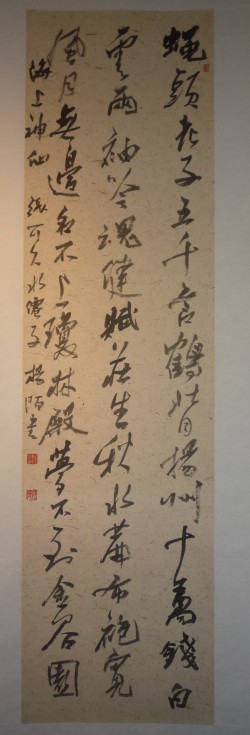 蠅頭老子五千言鶴背揚州十萬錢白
雲兩袖吟魂健賦莊生秋水篇布袍寬
風月無邊名不上瓊林殿夢不到金谷園
海上神仙 張可久水僊子 楊 書